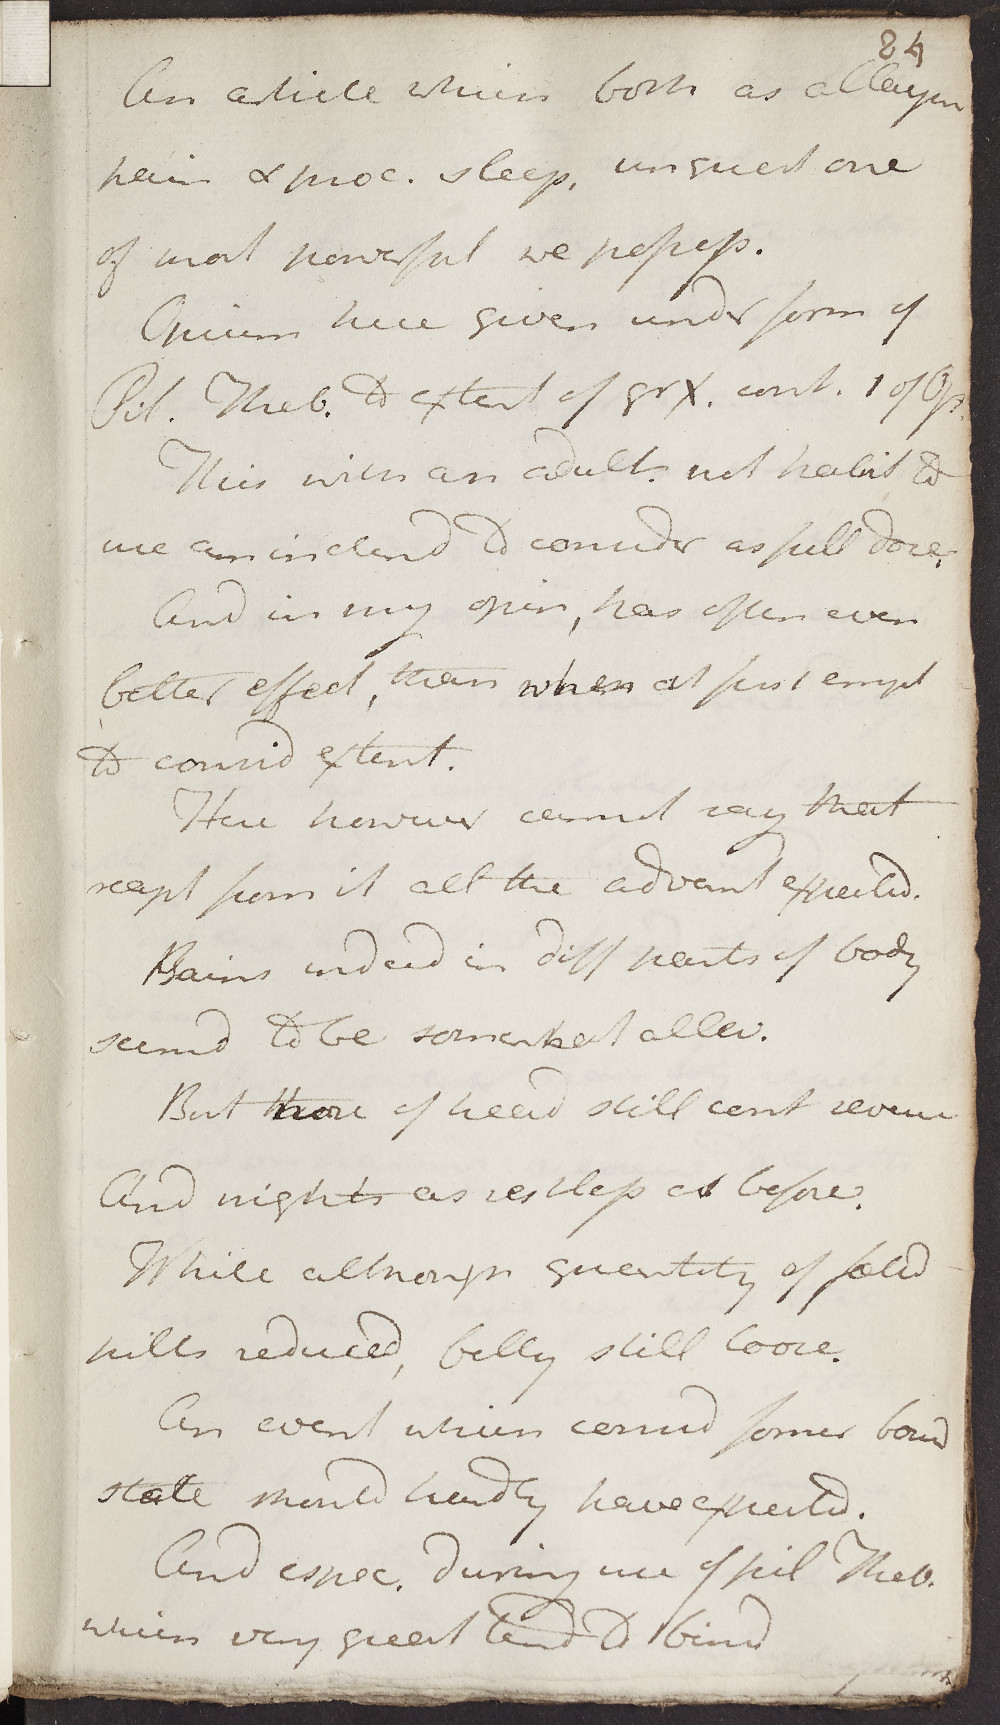 84
An article which both as allayin
pain & proc. sleep, unquest one
of most powerful we possess.
Opium here given under form of
Pil. Theb. to extent of gr X. cont. 1 of Op.
This with an adult not habit to
use am inclend to consider as full dose,
And in my opin, has often even
better effect, than when at first empl
to consid extent.
Here however cannot say that
reapt from it all the advant expected.
Pains indeed in diff parts of body
seemd to be somewhat allev.
But those of head still cont severe
And nights as restless as before.
While although quantity of fœtid
pills reduced, belly still loose.
An event which consid former bound
state should hardly have expected.
And espec. during use of pil Theb.
which very great tend to bind